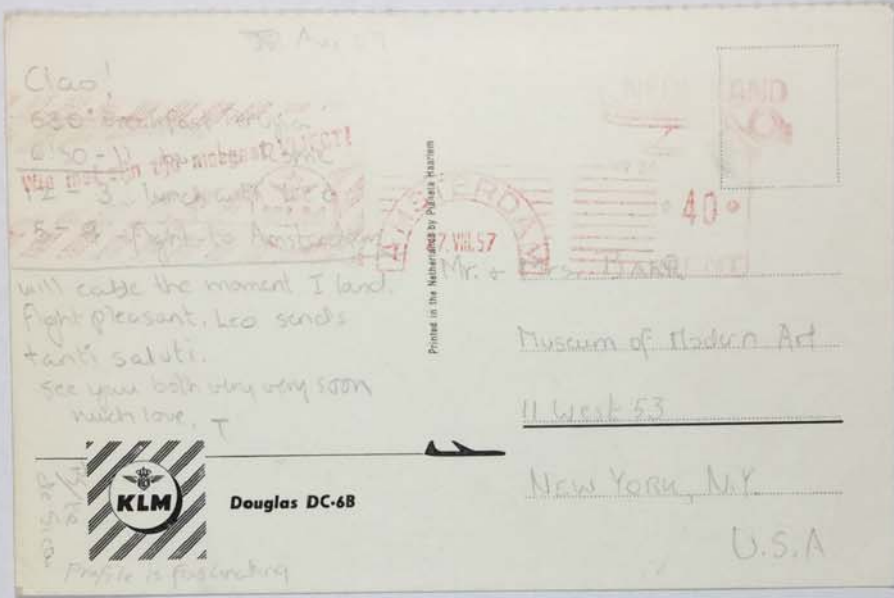 Ciao!
630 Breakfast
6 30 - 11 Rome
12 - 3 lunch with Leo
5 - 9 flight to Amsterdam
will cable the moment I land.
flight pleasant. Leo sends
tanti saluti.
See you both very very soon
much love, T
de Sica
Profile is fascinating
KLM
Douglas DC-6B
Printed in the Netherlands by Planeta Haarlem
AMSTERDAM
7.VIII.57
40
Mr. & Mrs. BARR
Museum of Modern Art
11 West 53
NEW YORK, N.Y.
U.S.A